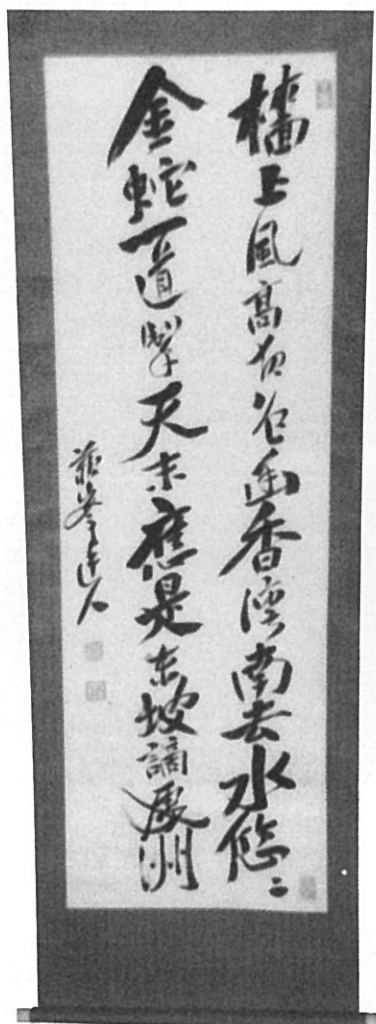 檣上風高夜色幽香湾南去水悠々
金蛇一道掣天末應是東坡謫處州
蘇峯人